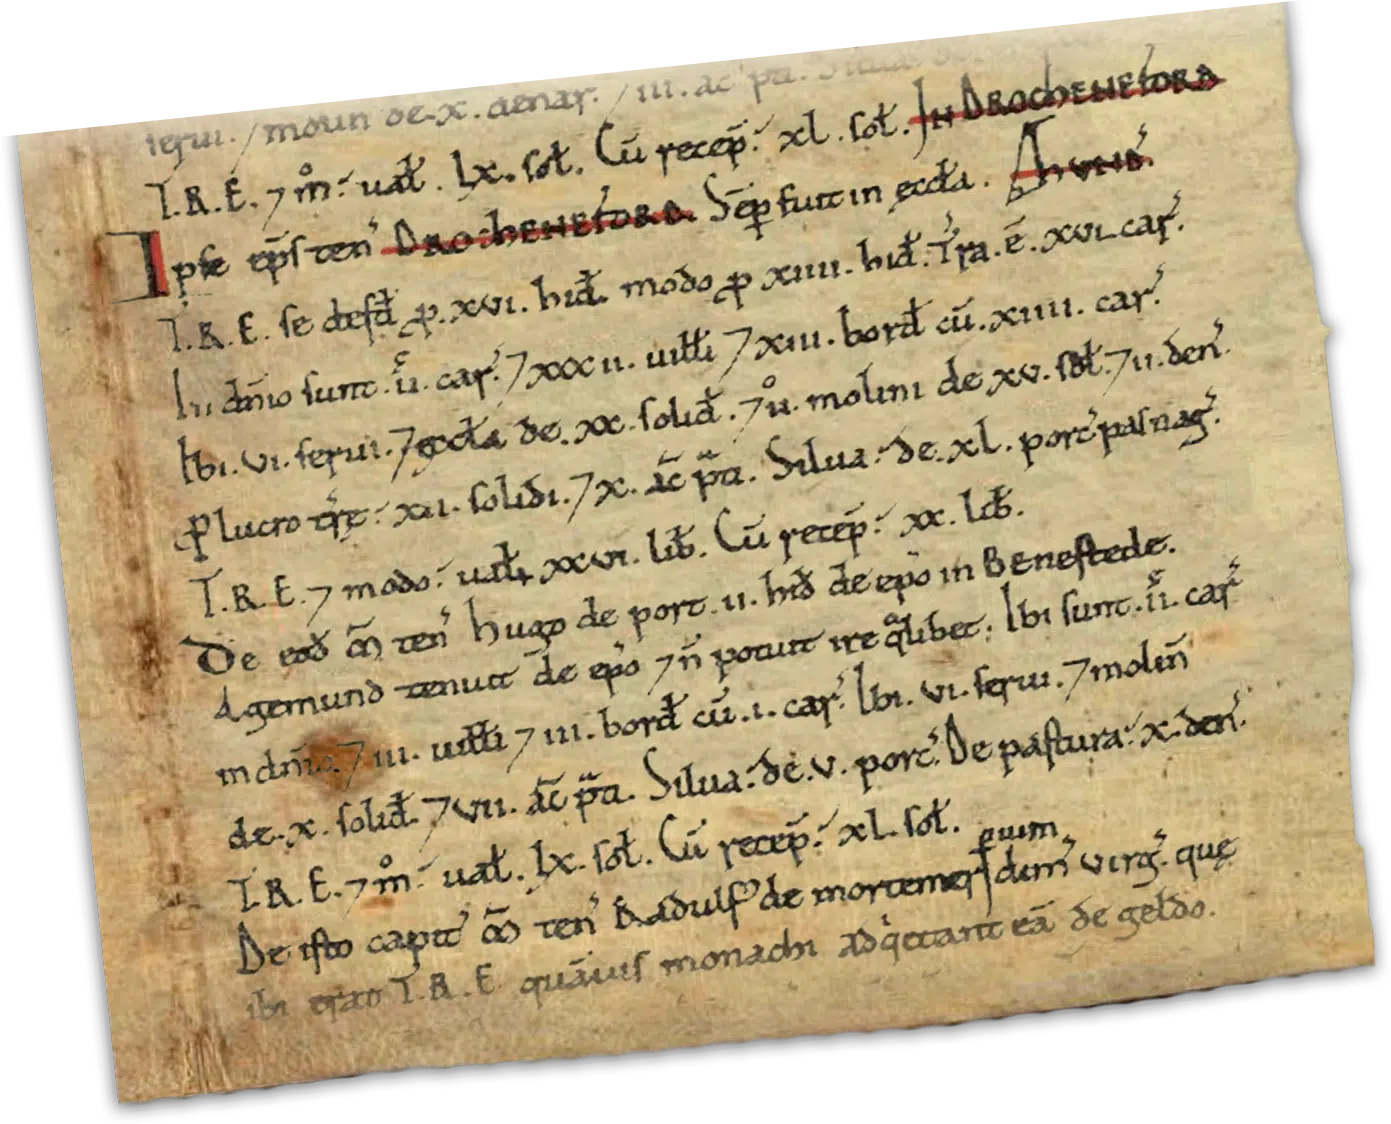 serui. ⁊ molin de .x. denar. ⁊ iii. ac̃ p̃ti. Silua de
T.R.E. ⁊ m̊: ual̃. lx. sol̃. Cũ recep̃: xl. sol̃. IN DROCHENEFORD
Ipse ep̃s ten' DROCHENEFORD. Sẽp fuit in eccl̃a. hund'.
T.R.E. se defd̃ ꝑ .xvi. hid̃. modo ꝑ xiiii. hid̃. Tr̃a. ẽ. xvi. car'.
In dñio sunt .ii. car'. ⁊ xxxii. uill̃i ⁊ xiii. bord̃ cũ. xiiii. car'.
Ibi. vi. serui. ⁊ eccl̃a de. xx. solid̃. ⁊ ii. molini de xv. sol̃. ⁊ ii. den'.
ꝓ lucro tr̃ę: xii. solidi. ⁊ x. ac̃ p̃ti. Silua: de. xl. porc' pasnag'.
T.R.E. ⁊ modo: ual̃. xxvi. lib̃. Cũ recep̃: xx. lib̃.
De eod̃ m̃ ten' hugo de port .ii. hid̃ de ep̃o in BENESTEDE.
Agemund tenuit de ep̃o ⁊ ñ potuit ire q̃libet. Ibi sunt .ii. car'
in dñio. ⁊ iii. uill̃i ⁊ iii. bord̃ cũ .i. car'. Ibi. vi. serui. ⁊ moliñ
de .x. solid̃. ⁊ vii. ac̃ p̃ti. Silua: de. v. porc'. De pastura: x. den'.
T.R.E. ⁊ m̊: ual̃. lx. sol̃. Cũ recep̃: xl. sol̃.
De isto capit' m̃ ten' Radulf' de mortemer dim' virg' quę
ibi erat T.R.E quãuis monachi adq'etant eã de geldo.